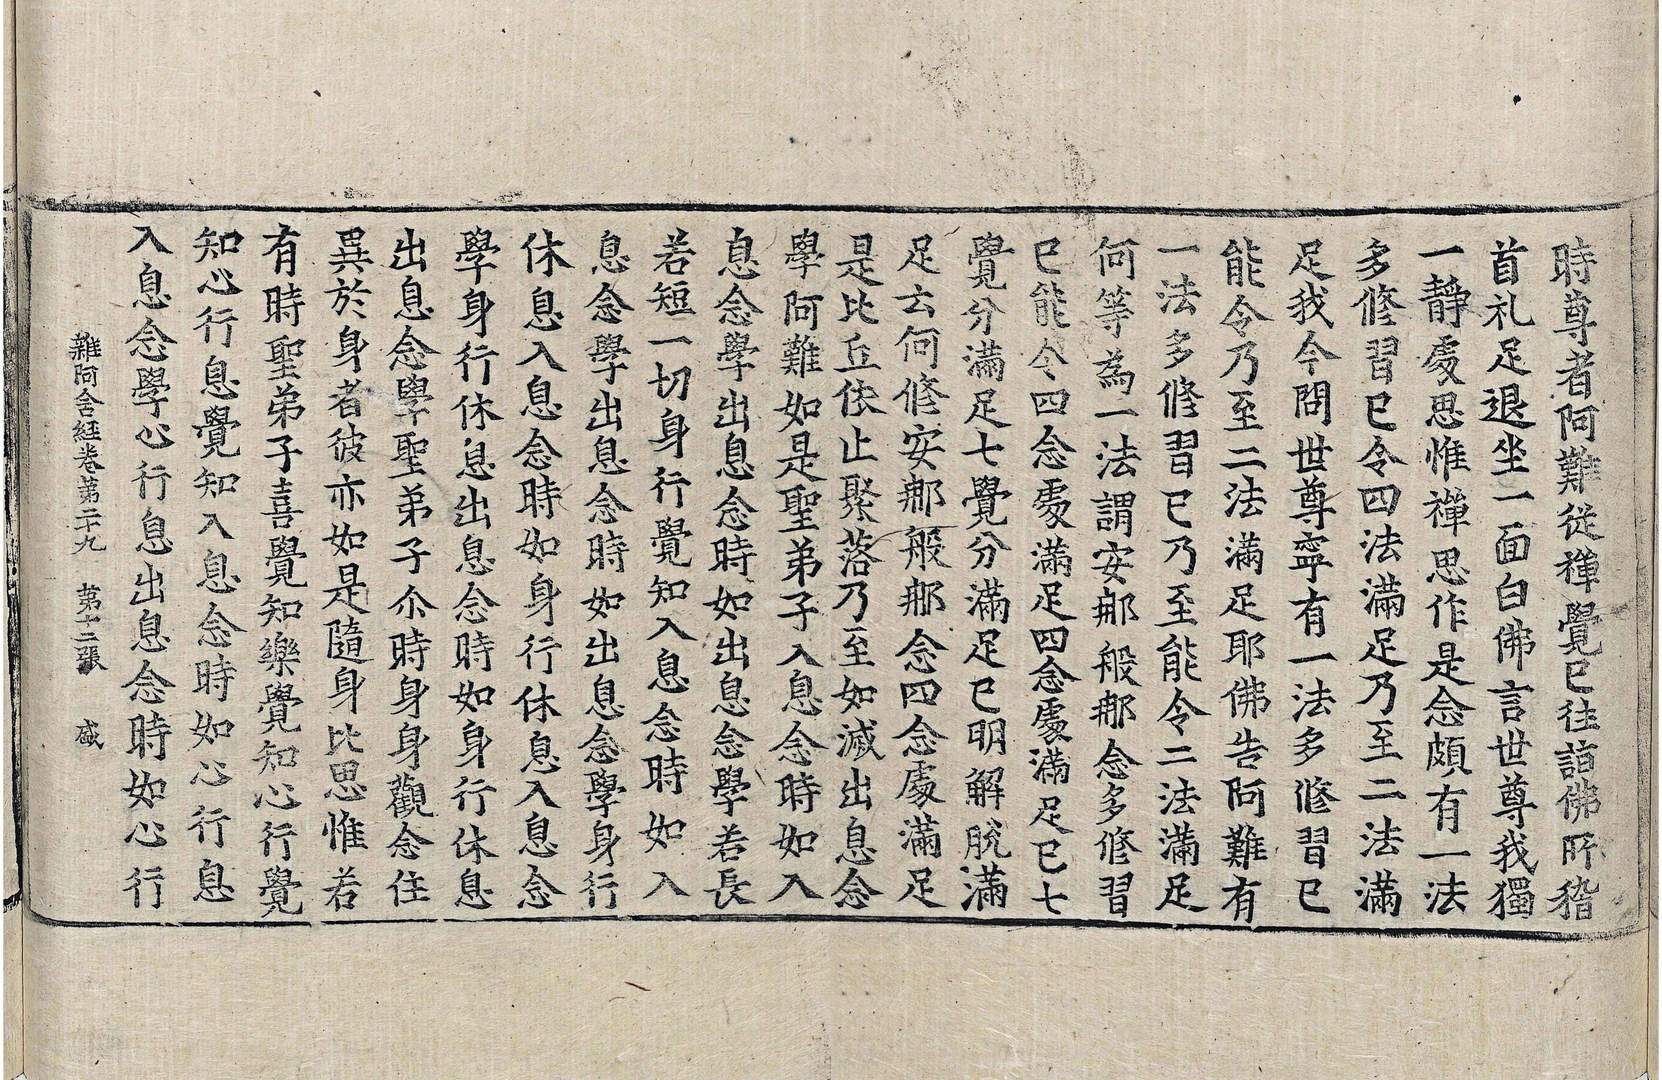 時尊者阿難從禪覺已往詣佛所稽
首礼足退坐一面白佛言世尊我獨
一靜處思惟禪思作是念頗有一法
多修習已令四法滿足乃至二法滿
足我今問世尊寧有一法多修習已
能令乃至二法滿足耶佛告阿難有
一法多修習已乃至能令二法滿足
何等為一法謂安那般那念多修習
已能令四念處滿足四念處滿足已七
覺分滿足七覺分滿足已明解脫滿
足云何修安那般那念四念處滿足
是比丘依止聚落乃至如滅出息念
學阿難如是聖弟子入息念時如入
息念學出息念時如出息念學若長
若短一切身行覺知入息念時如入
息念學出息念時如出息念學身行
休息入息念時如身行休息入息念
學身行休息出息念時如身行休息
出息念學聖弟子尒時身身觀念住
異於身者彼亦如是隨身比思惟若
有時聖弟子喜覺知樂覺知心行覺
知心行息覺知入息念時如心行息
入息念學心行息出息念時如心行
雜阿含經卷第二十九 第十二張 盛